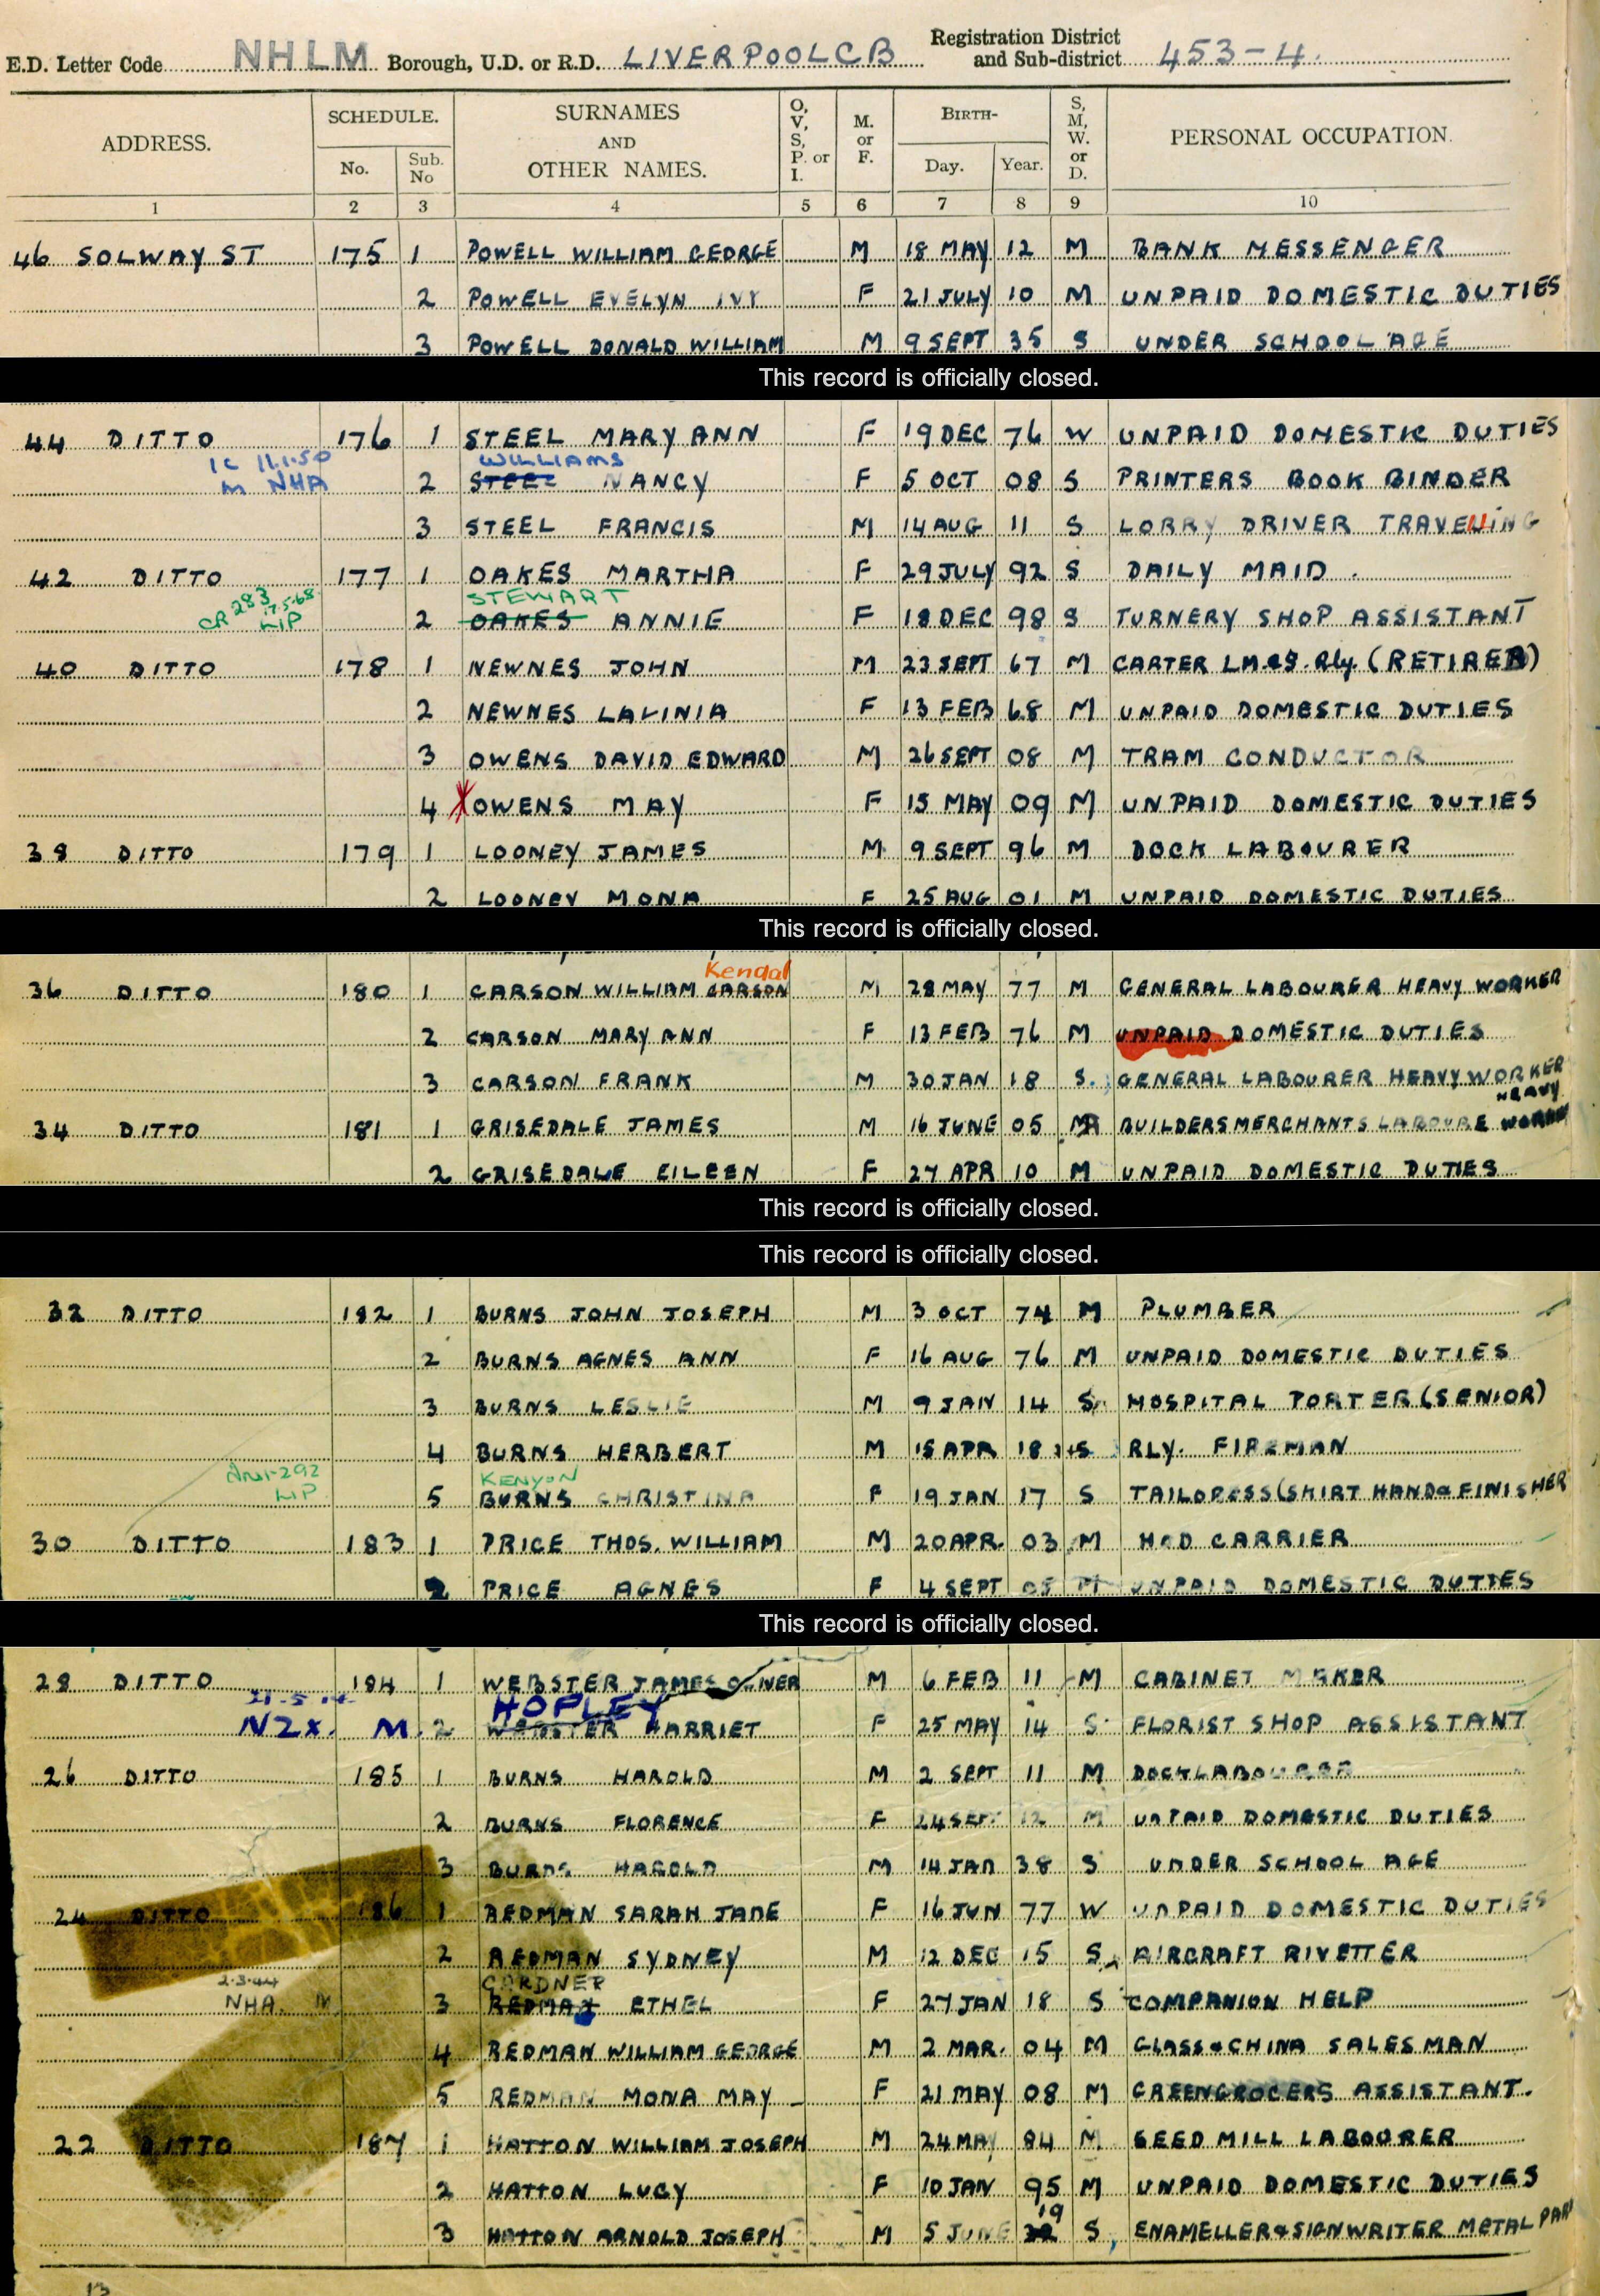 E.D. Letter Code NHLM Borough, U.D. or R.D. LIVERPOOL CB Registration District and Sub-district 453-4.
ADDRESS. SCHEDULE. No. Sub. No SURNAMES AND OTHER NAMES. O, V, S, P. or I. M. or F. BIRTH- Day. Year. S, M, W. or D. PERSONAL OCCUPATION.
1 2 3 4 5 6 7 8 9 10
46 SOLWAY ST 175 1 POWELL WILLIAM GEORGE M 18 MAY 12 M BANK MESSENGER
2 POWELL EVELYN IVY F 21 JULY 10 M UNPAID DOMESTIC DUTIES
3 POWELL DONALD WILLIAM M 9 SEPT 35 S UNDER SCHOOL AGE
This record is officially closed.
44 DITTO 176 1 STEEL MARY ANN F 19 DEC 76 W UNPAID DOMESTIC DUTIES
11.1.50 WILLIAMS
M NHA 2 STEEL NANCY F 5 OCT 08 S PRINTERS BOOK BINDER
3 STEEL FRANCIS M 14 AUG 11 S LORRY DRIVER TRAVELLING
42 DITTO 177 1 OAKES MARTHA F 29 JULY 92 S DAILY MAID
CR 283 17.5.68 LIP STEWART
2 OAKES ANNIE F 18 DEC 98 S TURNERY SHOP ASSISTANT
40 DITTO 178 1 NEWNES JOHN M 23 SEPT 67 M CARTER L.M.&S. Rly. (RETIRED)
2 NEWNES LAVINIA F 13 FEB 68 M UNPAID DOMESTIC DUTIES
3 OWENS DAVID EDWARD M 26 SEPT 08 M TRAM CONDUCTOR
4 OWENS MAY F 15 MAY 09 M UNPAID DOMESTIC DUTIES
38 DITTO 179 1 LOONEY JAMES M 9 SEPT 96 M DOCK LABOURER
2 LOONEY MONA F 25 AUG 01 M UNPAID DOMESTIC DUTIES
This record is officially closed.
Kendal
36 DITTO 180 1 CARSON WILLIAM CARSON M 28 MAY 77 M GENERAL LABOURER HEAVY WORKER
2 CARSON MARY ANN F 13 FEB 76 M UNPAID DOMESTIC DUTIES
3 CARSON FRANK M 30 JAN 18 S GENERAL LABOURER HEAVY WORKER
HEAVY
34 DITTO 181 1 GRISEDALE JAMES M 16 JUNE 05 M BUILDERS MERCHANTS LABOURE WORKER
2 GRISEDALE EILEEN F 27 APR 10 M UNPAID DOMESTIC DUTIES
This record is officially closed.
This record is officially closed.
32 DITTO 182 1 BURNS JOHN JOSEPH M 3 OCT 74 M PLUMBER
2 BURNS AGNES ANN F 16 AUG 76 M UNPAID DOMESTIC DUTIES
3 BURNS LESLIE M 9 JAN 14 S HOSPITAL PORTER (SENIOR)
4 BURNS HERBERT M 15 APR 18 S RLY. FIREMAN
292 LIP KENYON
5 BURNS CHRISTINA F 19 JAN 17 S TAILORESS (SHIRT HAND & FINISHER
30 DITTO 183 1 PRICE THOS. WILLIAM M 20 APR. 03 M HOD CARRIER
2 PRICE AGNES F 4 SEPT 05 M UNPAID DOMESTIC DUTIES
This record is officially closed.
28 DITTO 184 1 WEBSTER JAMES OLIVER M 6 FEB 11 M CABINET MAKER
HOPLEY
NZX. M. 2 WEBSTER HARRIET F 25 MAY 14 S FLORIST SHOP ASSISTANT
26 DITTO 185 1 BURNS HAROLD M 2 SEPT 11 M DOCK LABOURER
2 BURNS FLORENCE F 24 SEPT 12 M UNPAID DOMESTIC DUTIES
3 BURNS HAROLD M 14 JAN 38 S UNDER SCHOOL AGE
24 DITTO 186 1 REDMAN SARAH JANE F 16 JUN 77 W UNPAID DOMESTIC DUTIES
2 REDMAN SYDNEY M 12 DEC 15 S AIRCRAFT RIVETTER
2.3.44 GARDNER
NHA. M 3 REDMAN ETHEL F 27 JAN 18 S COMPANION HELP
4 REDMAN WILLIAM GEORGE M 2 MAR. 04 M GLASS & CHINA SALESMAN
5 REDMAN MONA MAY F 21 MAY 08 M GREENGROCERS ASSISTANT.
22 DITTO 187 1 HATTON WILLIAM JOSEPH M 24 MAY 84 M SEED MILL LABOURER
2 HATTON LUCY F 10 JAN 95 M UNPAID DOMESTIC DUTIES
19
3 HATTON ARNOLD JOSEPH M 5 JUNE S ENAMELLER & SIGNWRITER METAL PAR
13